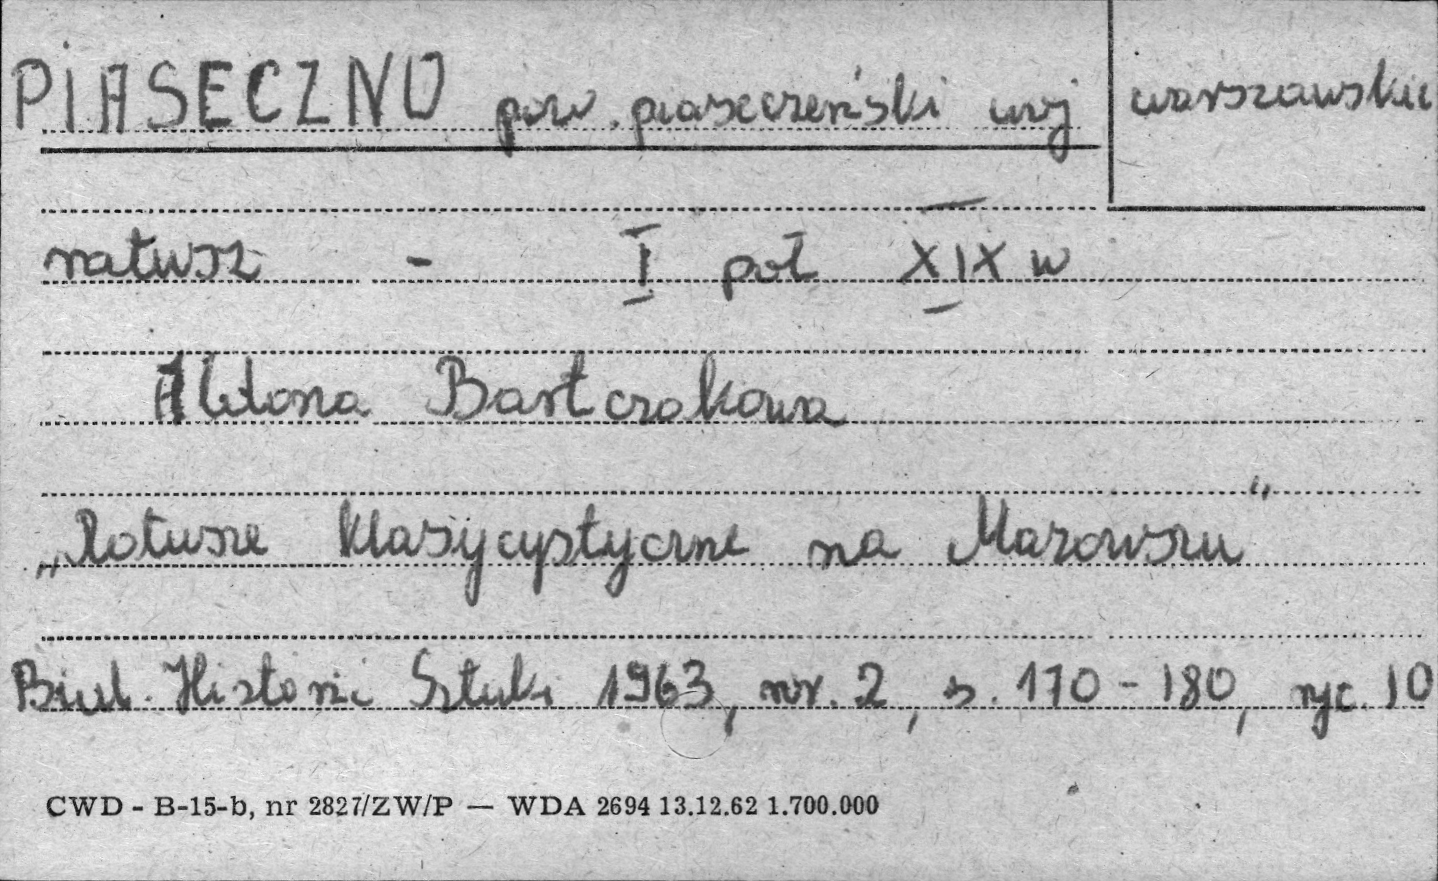 PIASECZNO pow. piaseczeński woj warszawskie
ratusz - I poł XIX w
Aldona Bartczakowa
„Ratusze klasycystyczne na Mazowszu"
Biul. Historii Sztuki 1963, nr. 2, s. 170-180, ryc. 10
CWD - B-15-b, nr 2827/ZW/P — WDA 2694 13.12.62 1.700.000